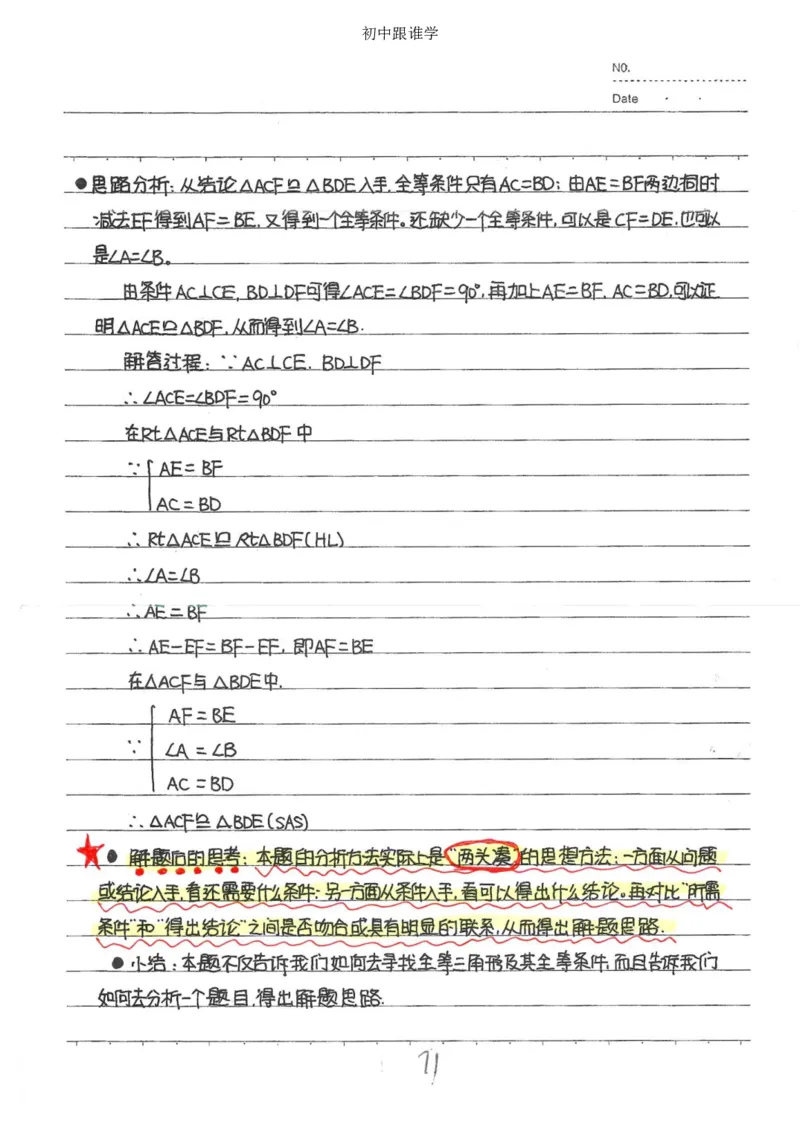 初中跟谁学
NO.
Date
●思路分析：从结论△ACF≌△BDE入手，全等条件只有AC=BD；由AE=BF两边同时
减去EF得到AF=BE，又得到一个全等条件。还缺少一个全等条件，可以是CF=DE，也可以
是∠A=∠B。
由条件AC⊥CE，BD⊥DF可得∠ACE=∠BDF=90°，再加上AE=BF，AC=BD，可以证
明△ACE≌△BDF，从而得到∠A=∠B．
解答过程：∵AC⊥CE，BD⊥DF
∴∠ACE=∠BDF=90°
在Rt△ACE与Rt△BDF中
∵{AE=BF
AC=BD
∴Rt△ACE≌Rt△BDF(HL)
∴∠A=∠B
∴AE=BF
∴AE-EF=BF-EF，即AF=BE
在△ACF与△BDE中，
AF=BE
∵{∠A=∠B
AC=BD
∴△ACF≌△BDE(SAS)
★●解题后的思考：本题的分析方法实际上是“两头凑”的思想方法：一方面从问题
或结论入手，看还需要什么条件；另一方面从条件入手，看可以得出什么结论。再对比“所需
条件”和“得出结论”之间是否吻合或具有明显的联系，从而得出解题思路．
●小结：本题不仅告诉我们如何去寻找全等三角形及其全等条件，而且告诉我们
如何去分析一个题目，得出解题思路．
71